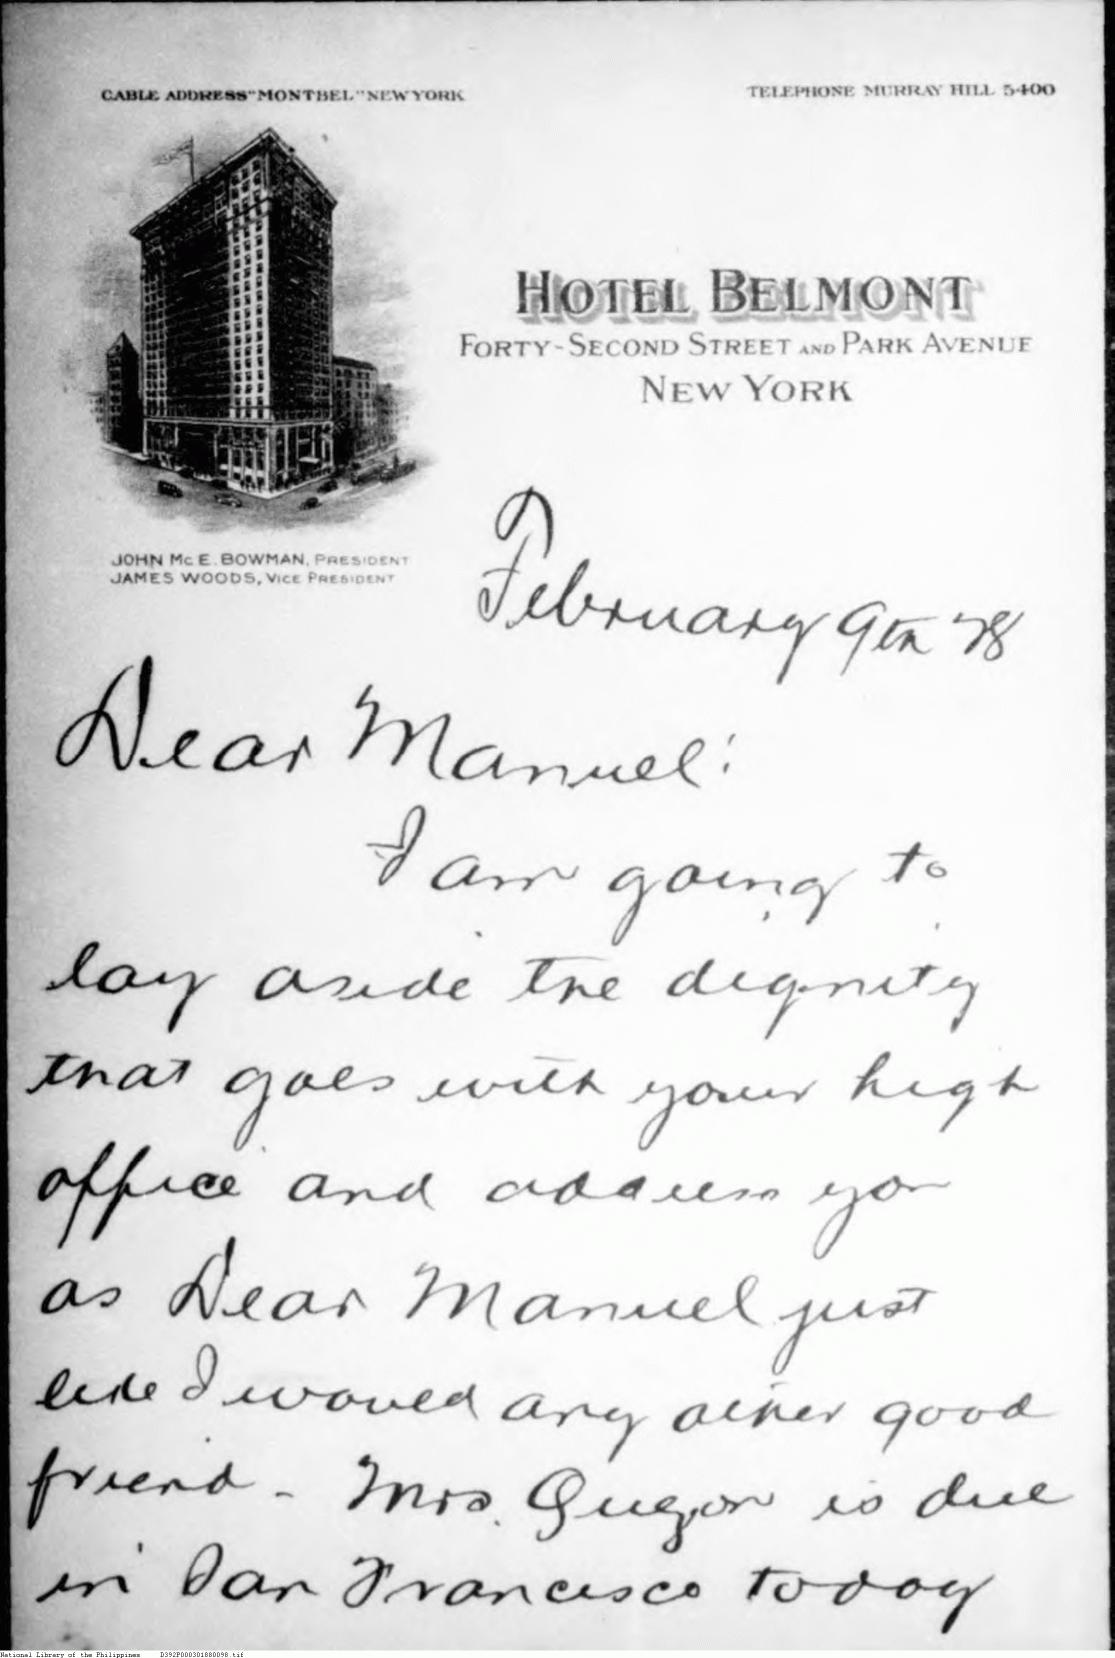 CABLE ADDRESS "MONTBEL" NEW YORK
TELEPHONE MURRAY HILL 5400
HOTEL BELMONT
FORTY-SECOND STREET AND PARK AVENUE
NEW YORK
JOHN McE. BOWMAN, PRESIDENT
JAMES WOODS, VICE PRESIDENT
February 9th '28
Dear Manuel:
I am going to
lay aside the dignity
that goes with your high
office and address you
as Dear Manuel just
like I would any other good
friend - Mrs. Quezon is due
in San Francisco today
National Library of the Philippines D392P000301880098.tif